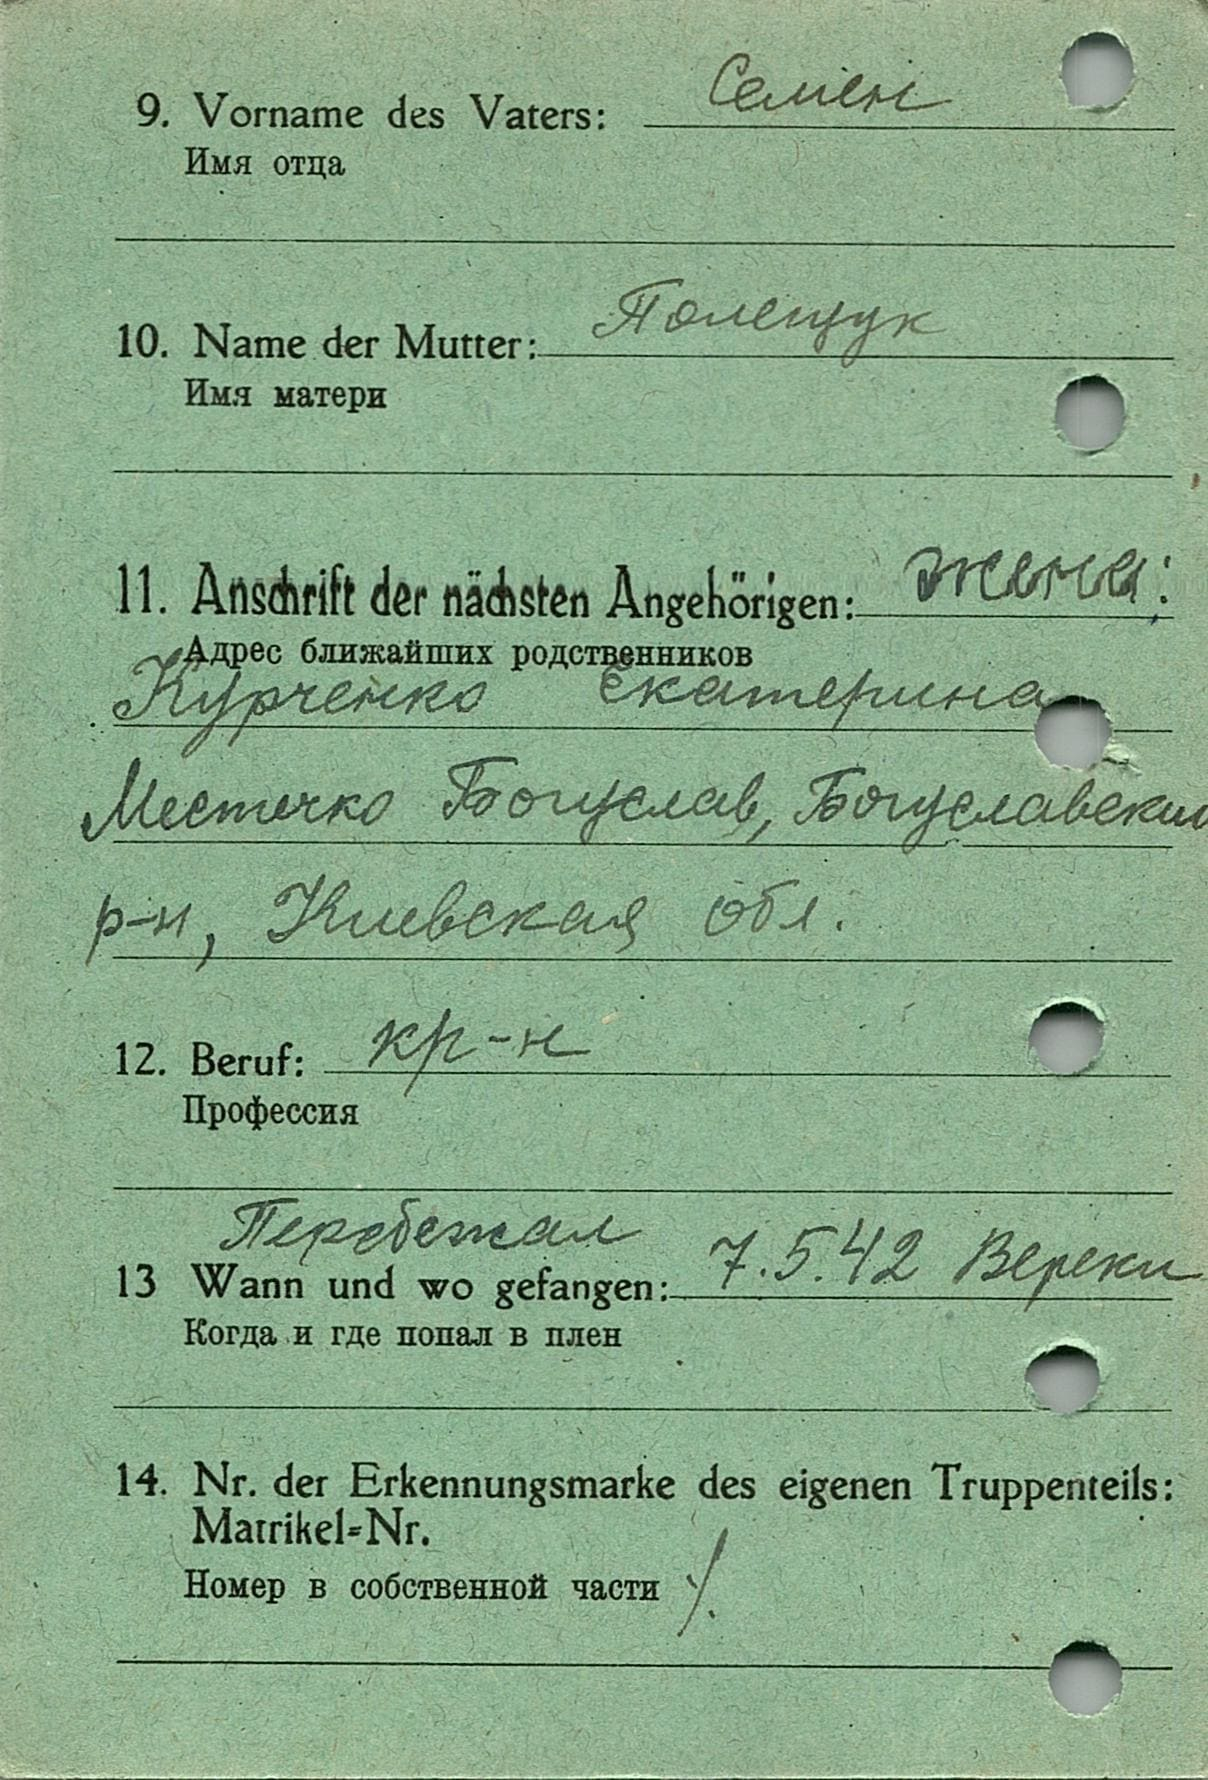 9. Vorname des Vaters: Семен
Имя отца
10. Name der Mutter: Полещук
Имя матери
11. Anschrift der nächsten Angehörigen: жена:
Адрес ближайших родственников
Курченко Екатерина
Местечко Богуслав, Богуславский
р-н, Киевская обл.
12. Beruf: кр-н
Профессия
Перебежал
13 Wann und wo gefangen: 7.5.42 Береки
Когда и где попал в плен
14. Nr. der Erkennungsmarke des eigenen Truppenteils:
Matrikel=Nr.
Номер в собственной части